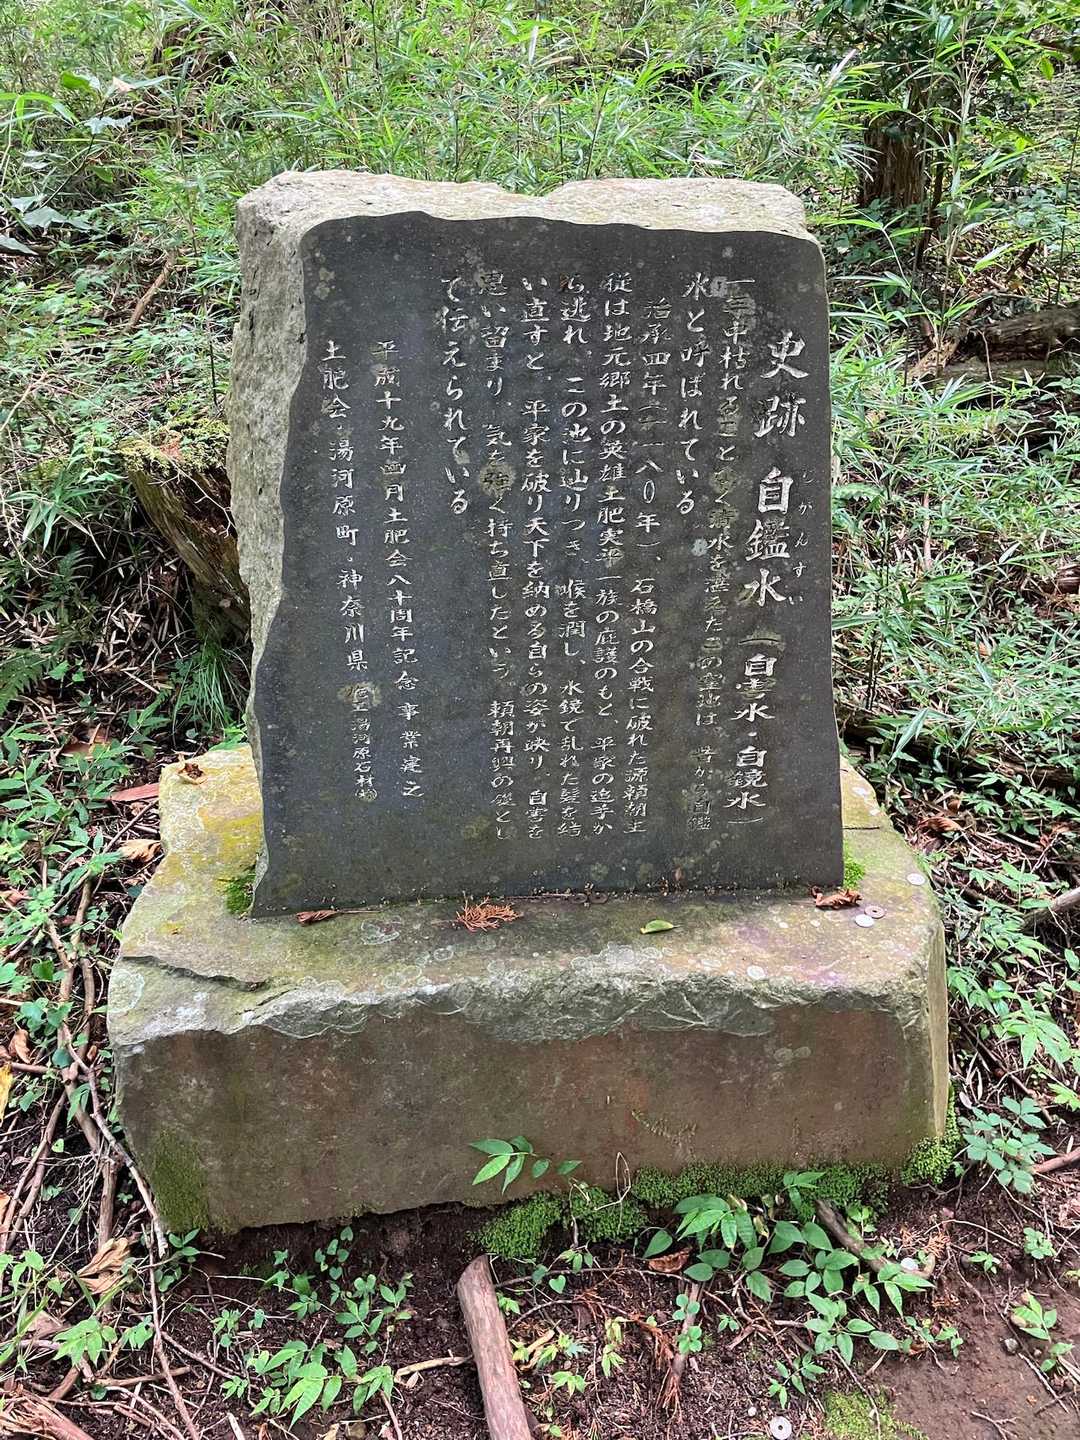 史跡 自鑑水（自害水・自鏡水）
じがんすい
一年中枯れることなく清水を湛えたこの窪地は、昔から自鑑
水と呼ばれている
治承四年（一一八〇年）、石橋山の合戦に破れた源頼朝主
従は地元郷土の英雄土肥実平一族の庇護のもと、平家の追手か
ら逃れ、この池に辿りつき、喉を潤し、水鏡で乱れた髪を結
い直すと、平家を破り天下を納める自らの姿が映り、自害を
思い留まり、気を強く持ち直したという。頼朝再興の礎とし
て伝えられている
平成十九年四月土肥会八十周年記念事業建之
土肥会・湯河原町・神奈川県 湯河原石材